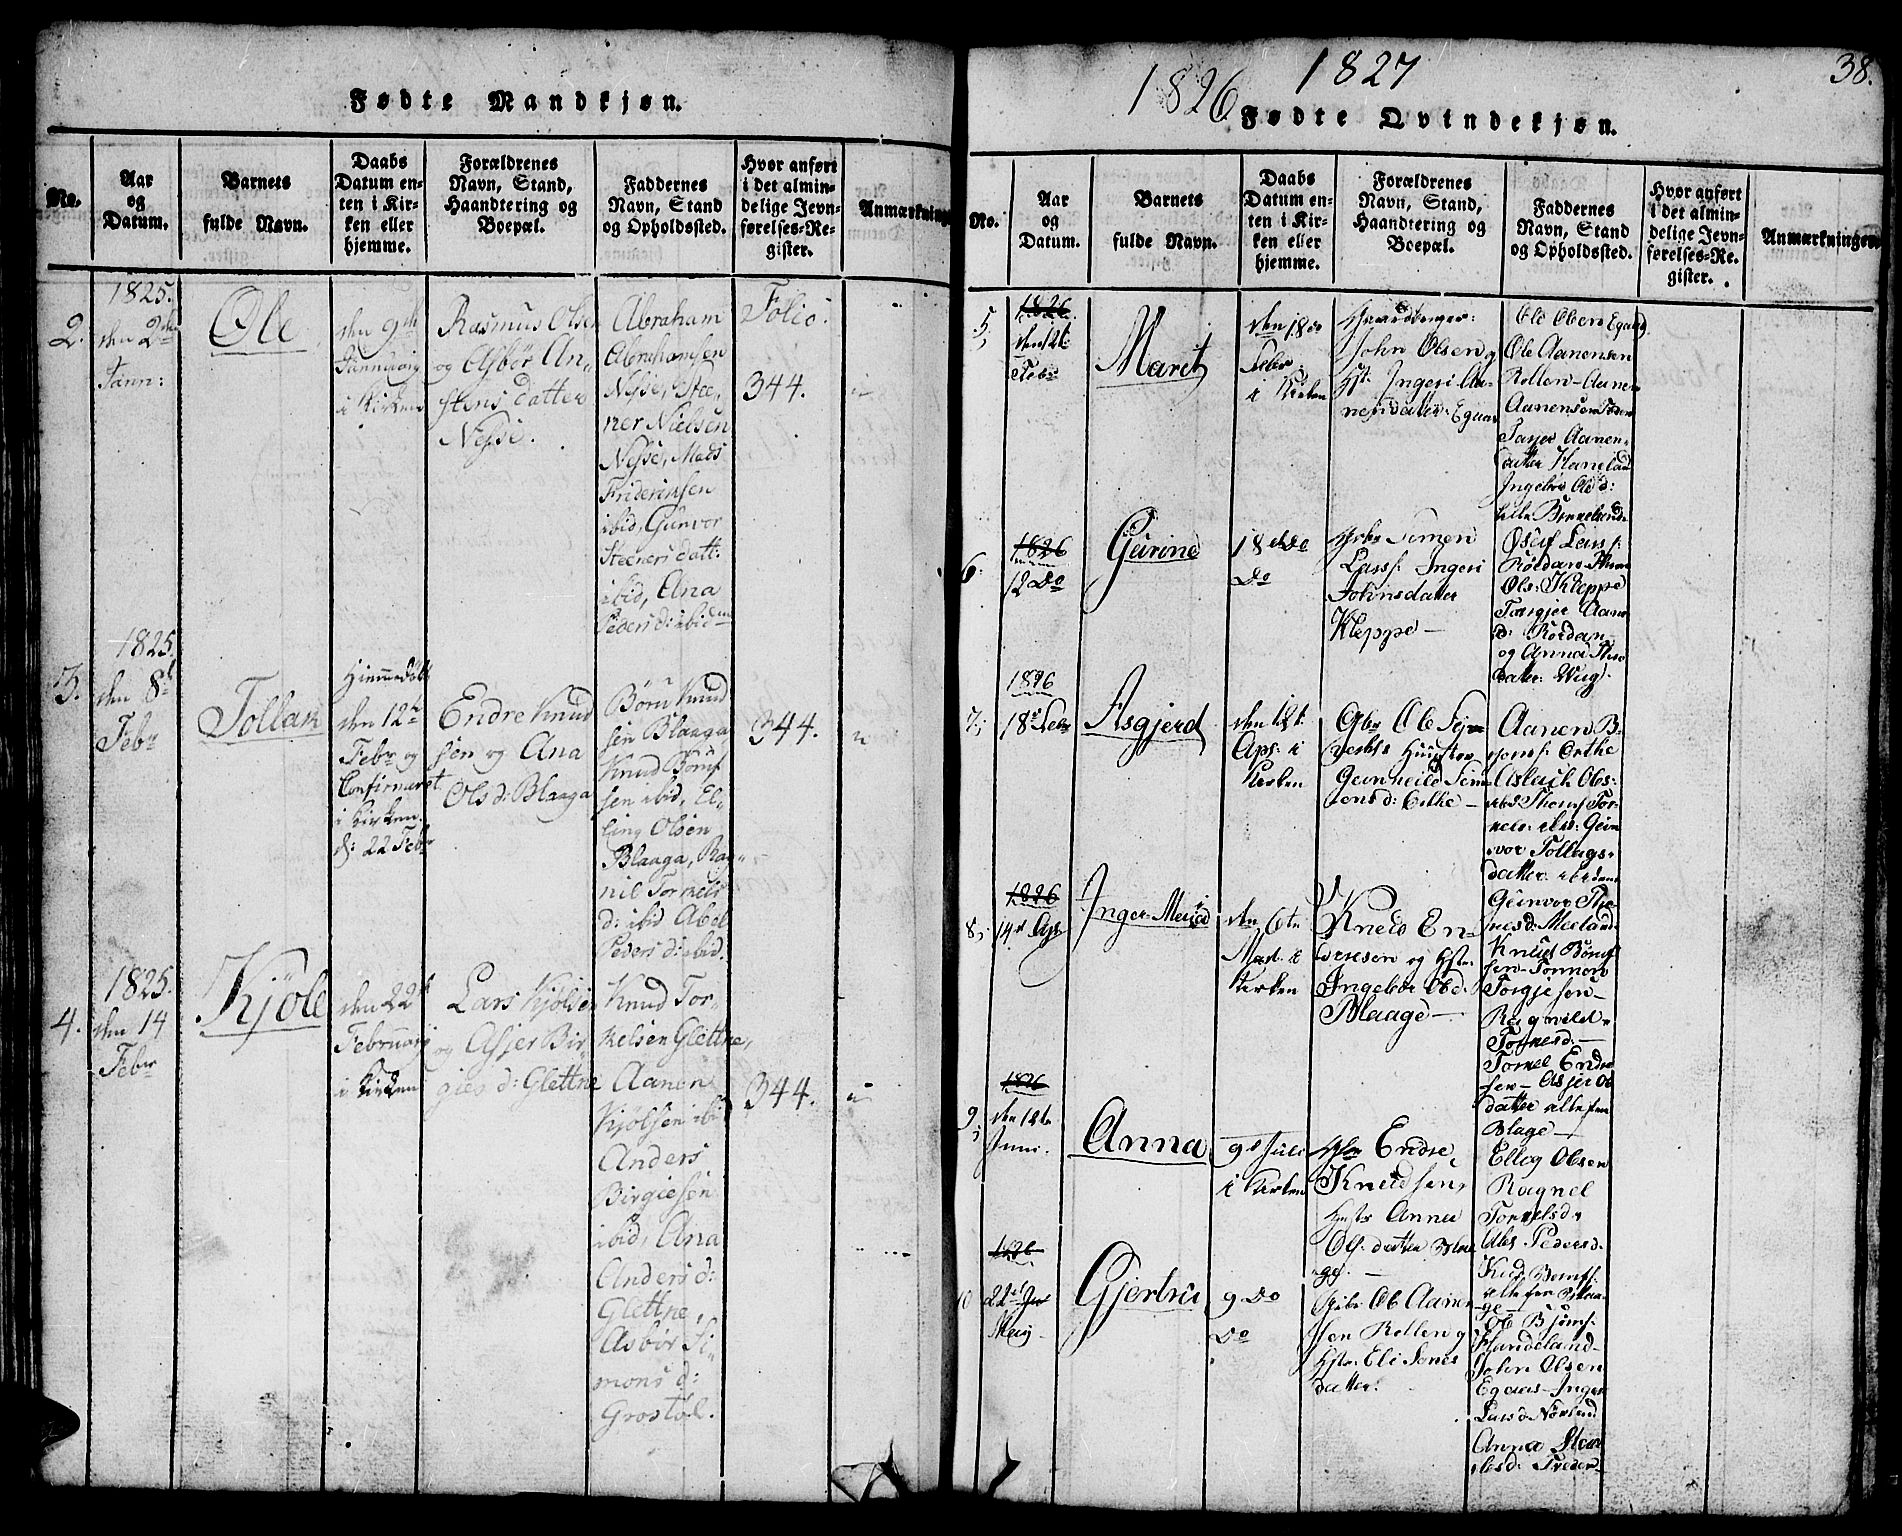 Fødte Mandkjøn.
No.
Aar
og
Datum.
Barnets
fulde Navn.
Daabs
Datum en-
ten i Kir-
ken eller
hjemme.
Forældrenes
Navn, Stand,
Haandtering og
Boepæl.
Faddernes
Navn, Stand
og Opholdssted.
Hvor anført
i det almin-
delige Jevn-
førelses-Re-
gister.
Anmærkninge
2.
1825.
den 2den
Jann:
Ole
den 9de
Januarij
i Kirken
Rasmus Olsen
og Asbør An-
stens datter
Nesse.
Abraham
Abrahamsen
Nesse, Ste-
ner Nielsen
Nesse, Mads
Friderichsen
ibid, Gunvor
Steeners datt:
ibid, Anna
Peders d: ibidem
Folio:
344.
3.
1825.
den 8de
Febr
Tollak
Hiemmedøbt
den 12te
Febr og
Confirmeret
i Kirken
d: 22 Febr
Endre Knud
sen og Ana
Ols d: Blaaga
Børu Knud
sen Blaaga
Knud Børuf
sen ibid, El-
ling Olsen
Blaaga, Rag-
nil Tormels
d: ibid Abel
Peders d: ibid.
344.
4.
1825.
den 14
Febr
Kjöle
den 22de
Februarij
i Kirken
Lars Kjølsen
og Asjer Bir
gies d: Glettne
Knud Tor-
kelsen Glettne,
Aanen
Kjölsen ibi
Anders
Birgiesen
ibid, Ana
Anders d:
Glettne,
Asbør Si-
mons d:
Grostøl.
344.
1826
1827
38.
Fødte Qvindekjøn.
No.
Aar
og
Datum.
Barnets
fulde Navn.
Daabs
Datum en-
ten i Kir-
ken eller
hjemme.
Forældrenes
Navn, Stand,
Haandtering og
Boepæl.
Faddernes
Navn, Stand
og Opholdssted.
Hvor anført
i det almin-
delige Jevn-
førelses-Re-
gister.
Anmærkninger
5,
1826
den 12t.
Febr
Maret
den 18de
Febr
i Kirken
Gaardbruger:
John Olsen og
Hst. Ingeri Aa-
nensdater Egaas
Ole Olsen Egaas,
Ole Aanensen
Rollen - Aanen
Aanensen
Aanen-
datter Haneland
Ingebor Ols d:
Birkeland
6:
1826
12 Do
Gurine
18 Do
Do
Gbr Simen
Larss: Ingeri
Johnsdater
Kleppe -
Oluf Larss:
Røidam
Ols: Kleppe
Torgjer Aanens
d: Røidam -
og Anna
dater:
7,
1826
18 Febr
Asgjerd
den 12t.
Apr. i
Kirken
Gbr Ole
Huustru
Gunneild Sim
ensd: Erthe -
Aanen B-
jørnf: Erthe
Aslach Ols-
ibd
Gun
vor Tollags-
datter. ibidem
8,
1826
14de Apr
Inger Maria
den 6te
Mai i
Kirken
Knud En-
dresen og Hst:
Ingebor Olsd.
Blaage -
Gunvor
Knud Børuf
sen - Tormon
Torgjesen -
Ragnild
Tormesd: -
Tormel Endre
sen - Asjer Ols
datter alle fra
Blage -
9,
1826
den 12te
Juni.
Anna
9de Juli
i Kirken
Gbr Endre
Knudsen,
Hustr Anna
Ols datter Blaa
ge. -
Elleg Olsen
Ragnel
Tormelsd:
Abel Pedersd.
Knud
alle fra Blaa-
ge -
10
1826
22de
Maij
Gjertru
9 Do
Do
Gbr Ole Aanen
sen Rollen og
Hstr: Eli Jons
datter.
Ole Bjørnf:
Hundeland -
John Olsen
Egaas - Inger
Larsd: Nørland
Anna